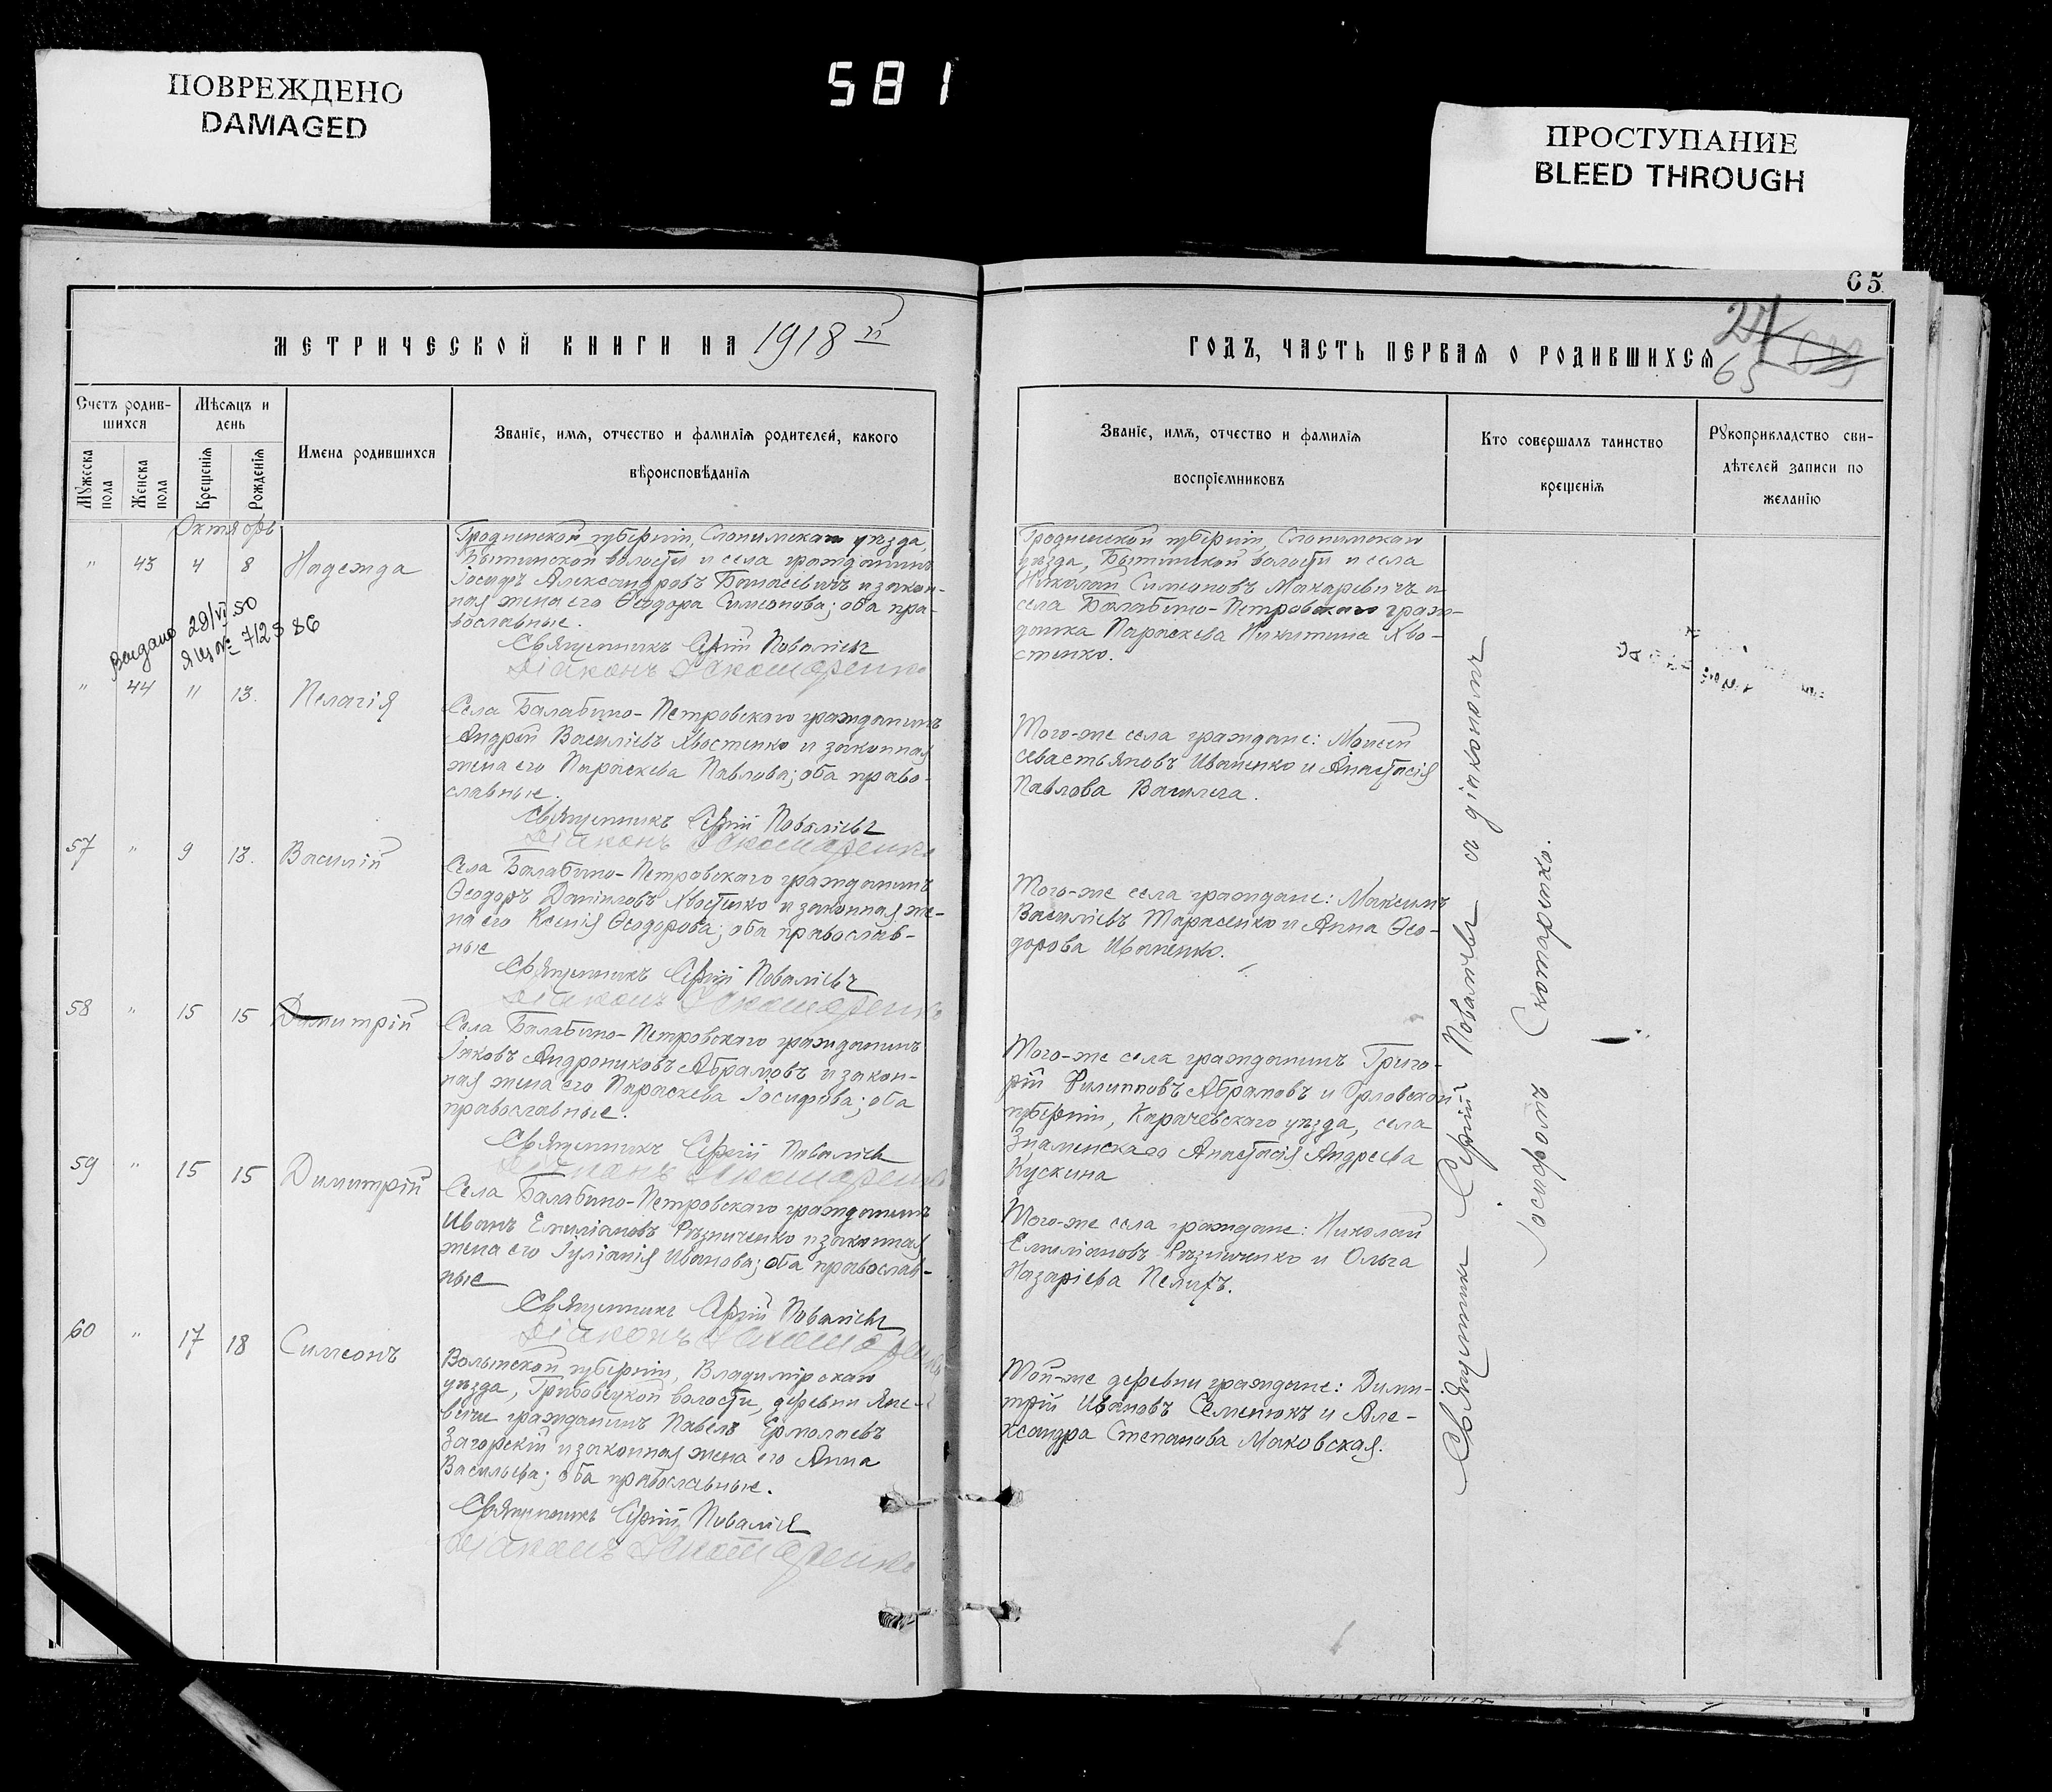 ПОВРЕЖДЕНО
DAMAGED
581
ПРОСТУПАНИЕ
BLEED THROUGH
65
МЕТРИЧЕСКОЙ КНИГИ НА 1918 й
Счетъ родив-
шихся
Мѣсяцъ и
день
Мужеска
пола
Женска
пола
Крещенія
Рожденія
Имена родившихся
Званіе, имя, отчество и фамилія родителей, какого
вѣроисповѣданія
Октябрь
" 43 4 8 Надежда
Гродненской губерніи, Слонимскаго уѣзда,
Бытинской волости и села гражданинъ
Іосифъ Александровъ Банасевичъ и закон-
ная жена его Ѳеодора Симеонова; оба пра-
вославные.
Священникъ Сергій Поваліевъ
Діаконъ І Скомаренко
Выдано 29/VI 50
Яц № 712586
" 44 11 13. Пелагія
Села Балабино-Петровскаго гражданинъ
Андрей Василіевъ Хвостенко и законная
жена его Параскева Павлова; оба право-
славные.
Священникъ Сергій Поваліевъ
Діаконъ І Скомаренко
57 " 9 13. Василій
Села Балабино-Петровскаго гражданинъ
Ѳеодоръ Даніиловъ Хвостенко и законная же-
на его Ксенія Ѳеодорова; оба православ-
ные
Священникъ Сергій Поваліевъ
Діаконъ І Скомаренко
58 " 15 15 Димитрій
Села Балабино-Петровскаго гражданинъ
Іаковъ Андрониковъ Абрамовъ и закон-
ная жена его Параскева Іосифова; оба
православные.
Священникъ Сергій Поваліевъ
Діаконъ І Скомаренко
59 " 15 15 Димитрій
Села Балабино-Петровскаго гражданинъ
Иванъ Емиліановъ Рѣзниченко и законная
жена его Іуліанія Иванова; оба православ-
ные
Священникъ Сергій Поваліевъ
Діаконъ І Скомаренко
60 " 17 18 Симеонъ
Волынской губерніи, Владимірскаго
уѣзда, Грибовецкой волости, деревни Яне-
вичи гражданинъ Павелъ Ермолаевъ
Загорскій и законная жена его Анна
Васильева; оба православные.
Священникъ Сергій Поваліев
Діаконъ І Скомаренко
ГОДЪ, ЧАСТЬ ПЕРВАЯ О РОДИВШИХСЯ
65
Званіе, имя, отчество и фамилія
воспріемниковъ
Кто совершалъ таинство
крещенія
Рукоприкладство сви-
дѣтелей записи по
желанію
Гродненской губерніи, Слонимскаго
уѣзда, Бытинской волости и села
Николай Симеоновъ Макаревичъ и
села Балабино-Петровскаго граж-
данка Параскева Никитина Хво-
стенко.
Того-же села граждане: Моисей
Севастьяновъ Иваненко и Анастасія
Павлова Василега.
Того-же села граждане: Максимъ
Василіевъ Тарасенко и Анна Ѳео-
дорова Иваненко.
Того-же села гражданинъ Григо-
рій Филипповъ Абрамовъ и Орловской
губерніи, Карачевскаго уѣзда, села
Знаменскаго Анастасія Андреева
Кускина
Того-же села граждане: Николай
Емиліановъ Рѣзниченко и Ольга
Назаріева Пелихъ.
Той-же деревни граждане: Дими-
трій Ивановъ Семенюкъ и Але-
ксандра Степанова Маковская.
Священникъ Сергій Поваліевъ съ діакономъ
Іосифомъ Скомаренко.